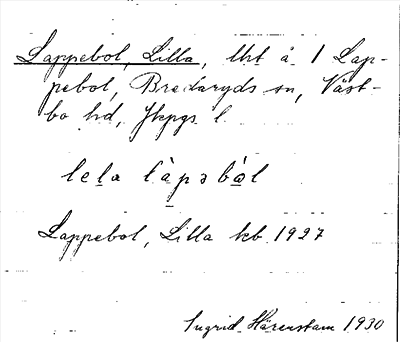 Lappebol, Lilla, lht å 1 Lap-
pebol, Bredaryds sn, Väst-
bo hd, Jkpgs l.
lela làpəbòl
Lappebol, Lilla kb 1927
Ingrid Härenstam 1930